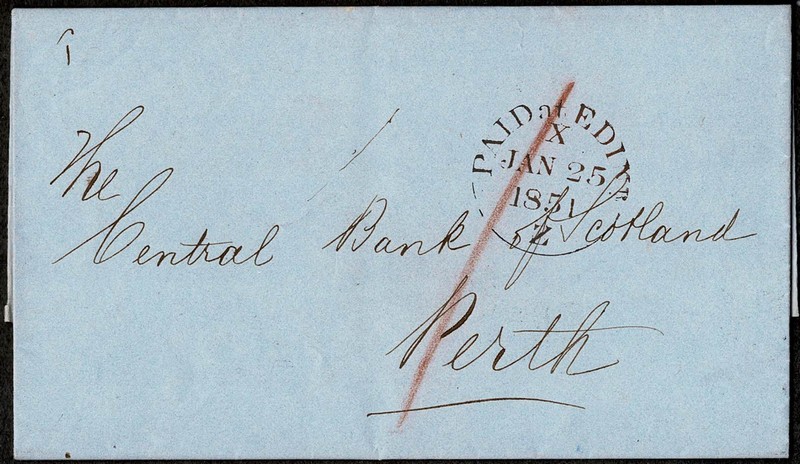 The
Central Bank of Scotland
Perth
PAID at EDINR
X
JAN 25
1851
Z